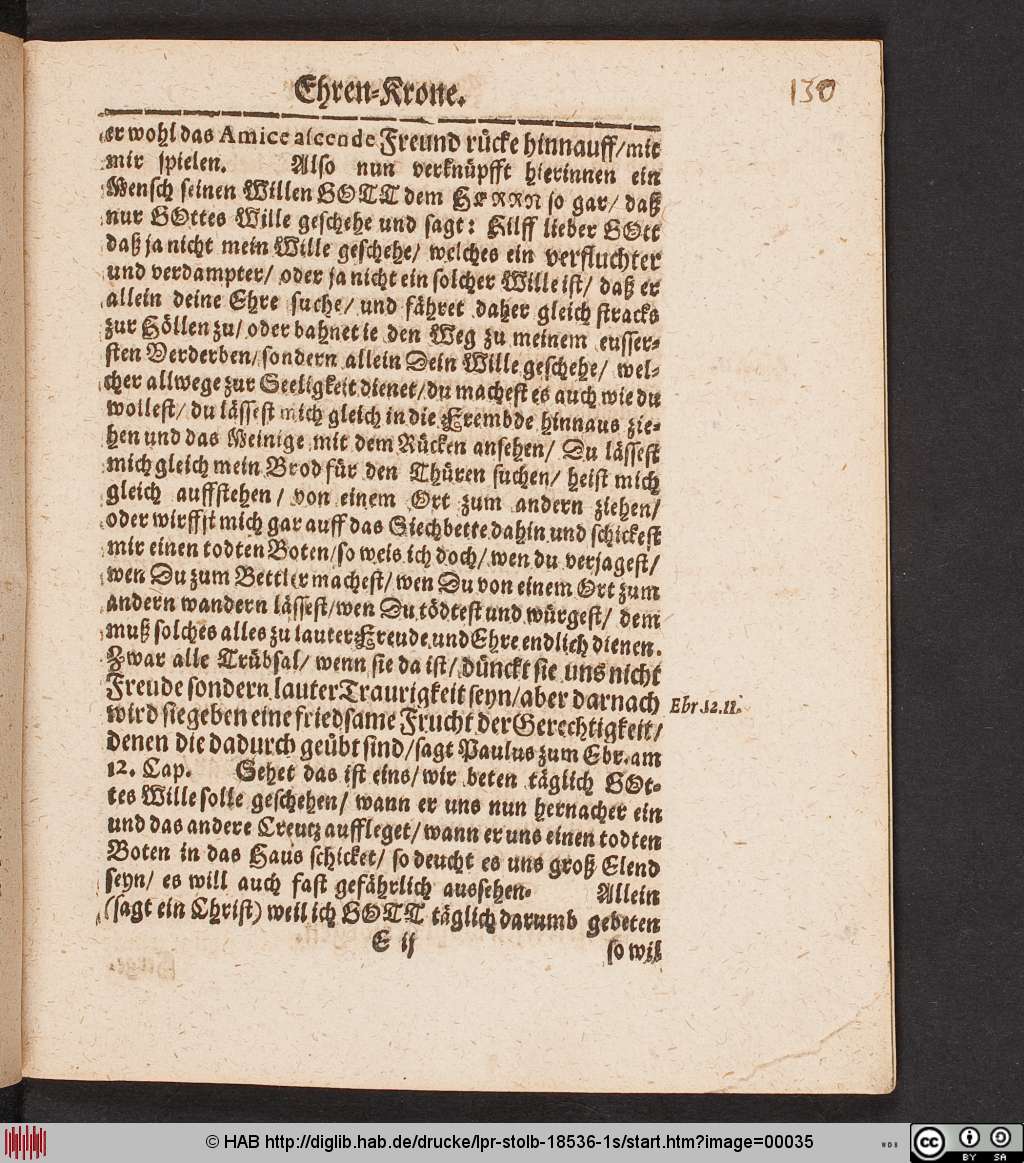 Ehren-Krone.
130
er wohl das Amice ascende Freund rücke hinnauff/mit
mir spielen. Also nun verknüpfft hierinnen ein
Mensch seinen Willen GOTT dem HERRN so gar/ daß
nur GOttes Wille geschehe und sagt: Hilff lieber GOtt
daß ja nicht mein Wille geschehe/ welches ein verfluchter
und verdampter/ oder ja nicht ein solcher Wille ist/ daß er
allein deine Ehre suche/ und fähret daher gleich stracks
zur Höllen zu/ oder bahnet ie den Weg zu meinem eusser-
sten Verderben/ sondern allein Dein Wille geschehe/ wel-
cher allwege zur Seeligkeit dienet/ du machest es auch wie du
wollest/ du lässest mich gleich in die Frembde hinnaus zie-
hen und das Meinige mit dem Rücken ansehen/ Du lässest
mich gleich mein Brod für den Thüren suchen/ heist mich
gleich auffstehen/ von einem Ort zum andern ziehen/
oder wirffst mich gar auff das Siechbette dahin und schickest
mir einen todten Boten/ so weis ich doch/ wen du verjagest/
wen Du zum Bettler machest/ wen Du von einem Ort zum
andern wandern lässest/ wen Du tödtest und würgest/ dem
muß solches alles zu lauter Freude und Ehre endlich dienen.
Zwar alle Trübsal/ wenn sie da ist/ dünckt sie uns nicht
Freude sondern lauter Traurigkeit seyn/ aber darnach
Ebr. 12. 11.
wird sie geben eine friedsame Frucht der Gerechtigkeit/
denen die dadurch geübt sind/ sagt Paulus zum Ebr. am
12. Cap. Sehet das ist eins/ wir beten täglich GOt-
tes Wille solle geschehen/ wann er uns nun hernacher ein
und das andere Creutz auffleget/ wann er uns einen todten
Boten in das Haus schicket/ so deucht es uns groß Elend
seyn/ es will auch fast gefährlich aussehen. Allein
(sagt ein Christ) weil ich GOTT täglich darumb gebeten
E ij
so wil
© HAB http://diglib.hab.de/drucke/lpr-stolb-18536-1s/start.htm?image=00035
WDB
cc BY SA